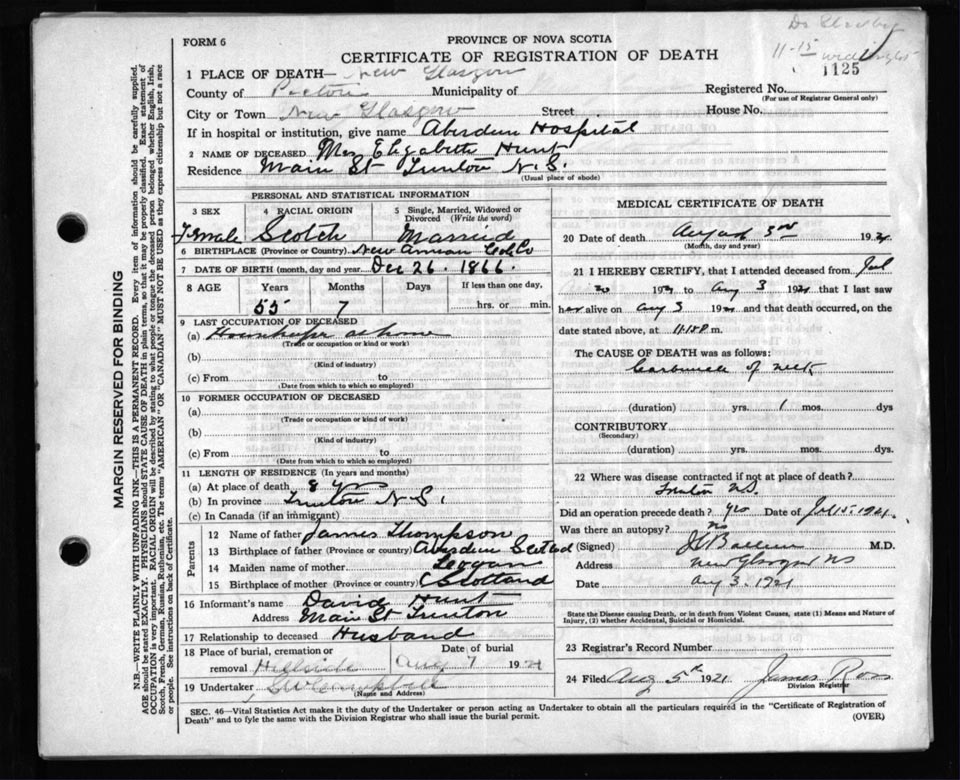 FORM 6
PROVINCE OF NOVA SCOTIA
CERTIFICATE OF REGISTRATION OF DEATH
11-15
1125
1 PLACE OF DEATH— New Glasgow
County of Pictou Municipality of Registered No.
(For use of Registrar General only)
City or Town New Glasgow Street House No.
If in hospital or institution, give name Aberdeen Hospital
2 NAME OF DECEASED Mrs Elizabeth Hunt
Residence Main St Trenton N.S.
(Usual place of abode)
PERSONAL AND STATISTICAL INFORMATION
3 SEX 4 RACIAL ORIGIN 5 Single, Married, Widowed or Divorced (Write the word)
Female Scotch Married
6 BIRTHPLACE (Province or Country) New Annan Col. Co
7 DATE OF BIRTH (month, day and year) Dec 26. 1866.
8 AGE Years Months Days If less than one day,
55 7 hrs. or min.
9 LAST OCCUPATION OF DECEASED
(a) at home
(Trade or occupation or kind or work)
(b)
(Kind of industry)
(c) From to
(Date from which to which so employed)
10 FORMER OCCUPATION OF DECEASED
(a)
(Trade or occupation or kind of work)
(b)
(Kind of industry)
(c) From to
(Date from which to which so employed)
11 LENGTH OF RESIDENCE (In years and months)
(a) At place of death 8 yrs
(b) In province Trenton N.S.
(c) In Canada (if an immigrant)
Parents
12 Name of father James Thompson
13 Birthplace of father (Province or country) Aberdeen Scotland
14 Maiden name of mother Logan
15 Birthplace of mother (Province or country) Scotland
16 Informant's name David Hunt
Address Main St Trenton
17 Relationship to deceased Husband
18 Place of burial, cremation or removal Hillside Date of burial Aug 7 1921
19 Undertaker
(Name and Address)
MEDICAL CERTIFICATE OF DEATH
20 Date of death August 3rd 1921
(Month, day and year)
21 I HEREBY CERTIFY, that I attended deceased from Jul
1921 to Aug 3 1921 that I last saw
her alive on Aug 3 1921 and that death occurred, on the
date stated above, at m.
The CAUSE OF DEATH was as follows:
Carbuncle of neck
(duration) yrs. 1 mos. dys
CONTRIBUTORY
(Secondary)
(duration) yrs. mos. dys
22 Where was disease contracted if not at place of death?
Trenton N.S.
Did an operation precede death? yes Date of 1921
Was there an autopsy? No
(Signed) M.D.
Address New Glasgow NS
Date Aug 3. 1921
State the Disease causing Death, or in death from Violent Causes, state (1) Means and Nature of Injury, (2) whether Accidental, Suicidal or Homicidal.
23 Registrar's Record Number
24 Filed Aug 5th 1921 James Ross
Division Registrar
SEC. 46—Vital Statistics Act makes it the duty of the Undertaker or person acting as Undertaker to obtain all the particulars required in the "Certificate of Registration of
Death" and to fyle the same with the Division Registrar who shall issue the burial permit.
(OVER)
MARGIN RESERVED FOR BINDING
N.B.—WRITE PLAINLY WITH UNFADING INK—THIS IS A PERMANENT RECORD. Every item of information should be carefully supplied.
AGE should be stated EXACTLY. PHYSICIANS should STATE CAUSE OF DEATH in plain terms, so that it may be properly classified. Exact statement of
OCCUPATION is very important. RACIAL ORIGIN will be described by stating to what people or tongue the deceased person belonged whether English, Irish,
Scotch, French, German, Russian, Ruthenian, etc. The terms "AMERICAN" OR "CANADIAN" MUST NOT BE USED as they express citizenship but not a race
or people. See instructions on back of Certificate.